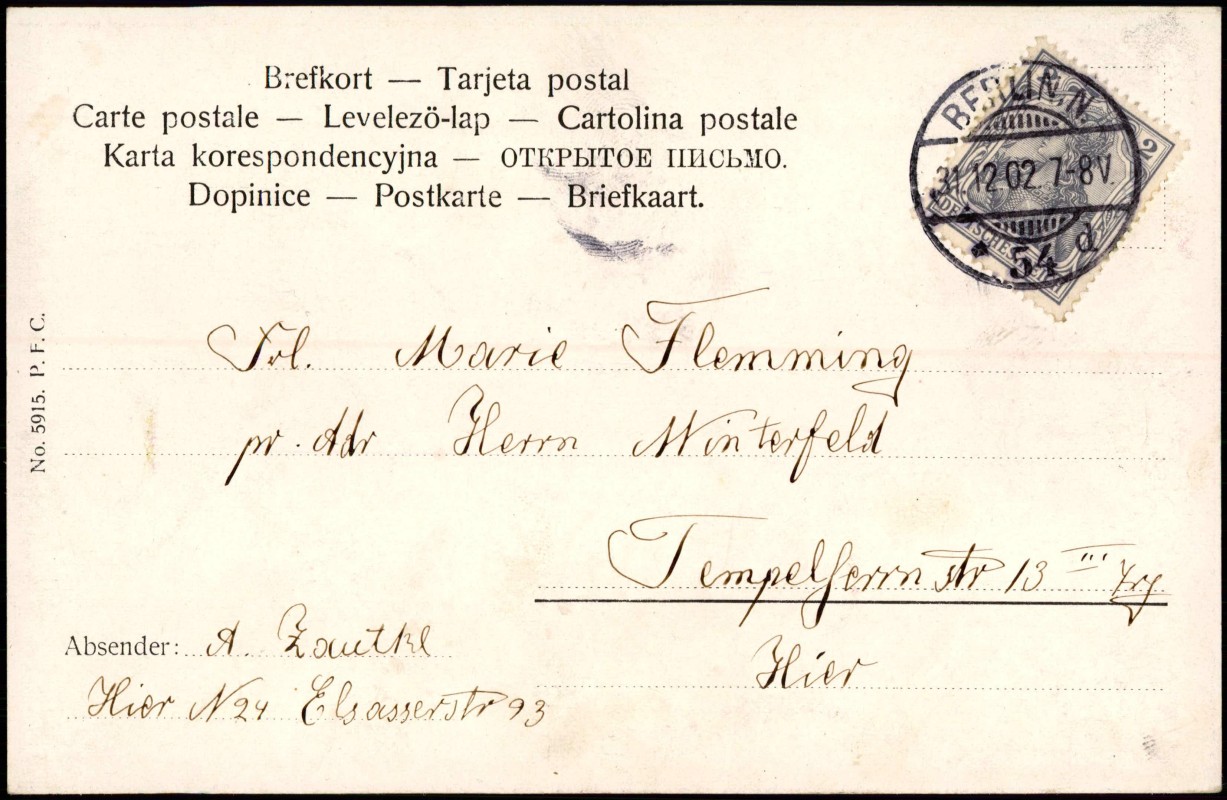 Brefkort — Tarjeta postal
Carte postale — Levelezö-lap — Cartolina postale
Karta korespondencyjna — ОТКРЫТОЕ ПИСЬМО.
Dopinice — Postkarte — Briefkaart.
BERLIN N.
31.12.02. 7-8V.
* 54 d
2
DEUTSCHES
No. 5915. P. F. C.
Frl. Marie Flemming
pr. Adr Herrn Winterfeld
Tempelherrnstr 13 III
Hier
Absender: A. Zautke
Hier N 24 Elsasserstr 93